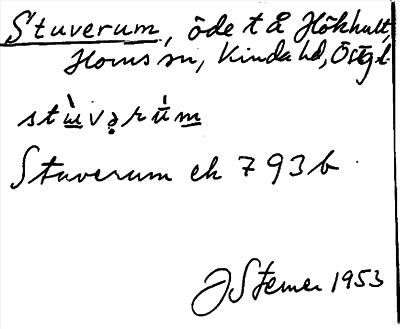 Stuverum, öde t å Hökhult,
Horns sn, Kinda hd, Östgl.
stùvərúm
Stuverum ek 793b.
JSterner 1953